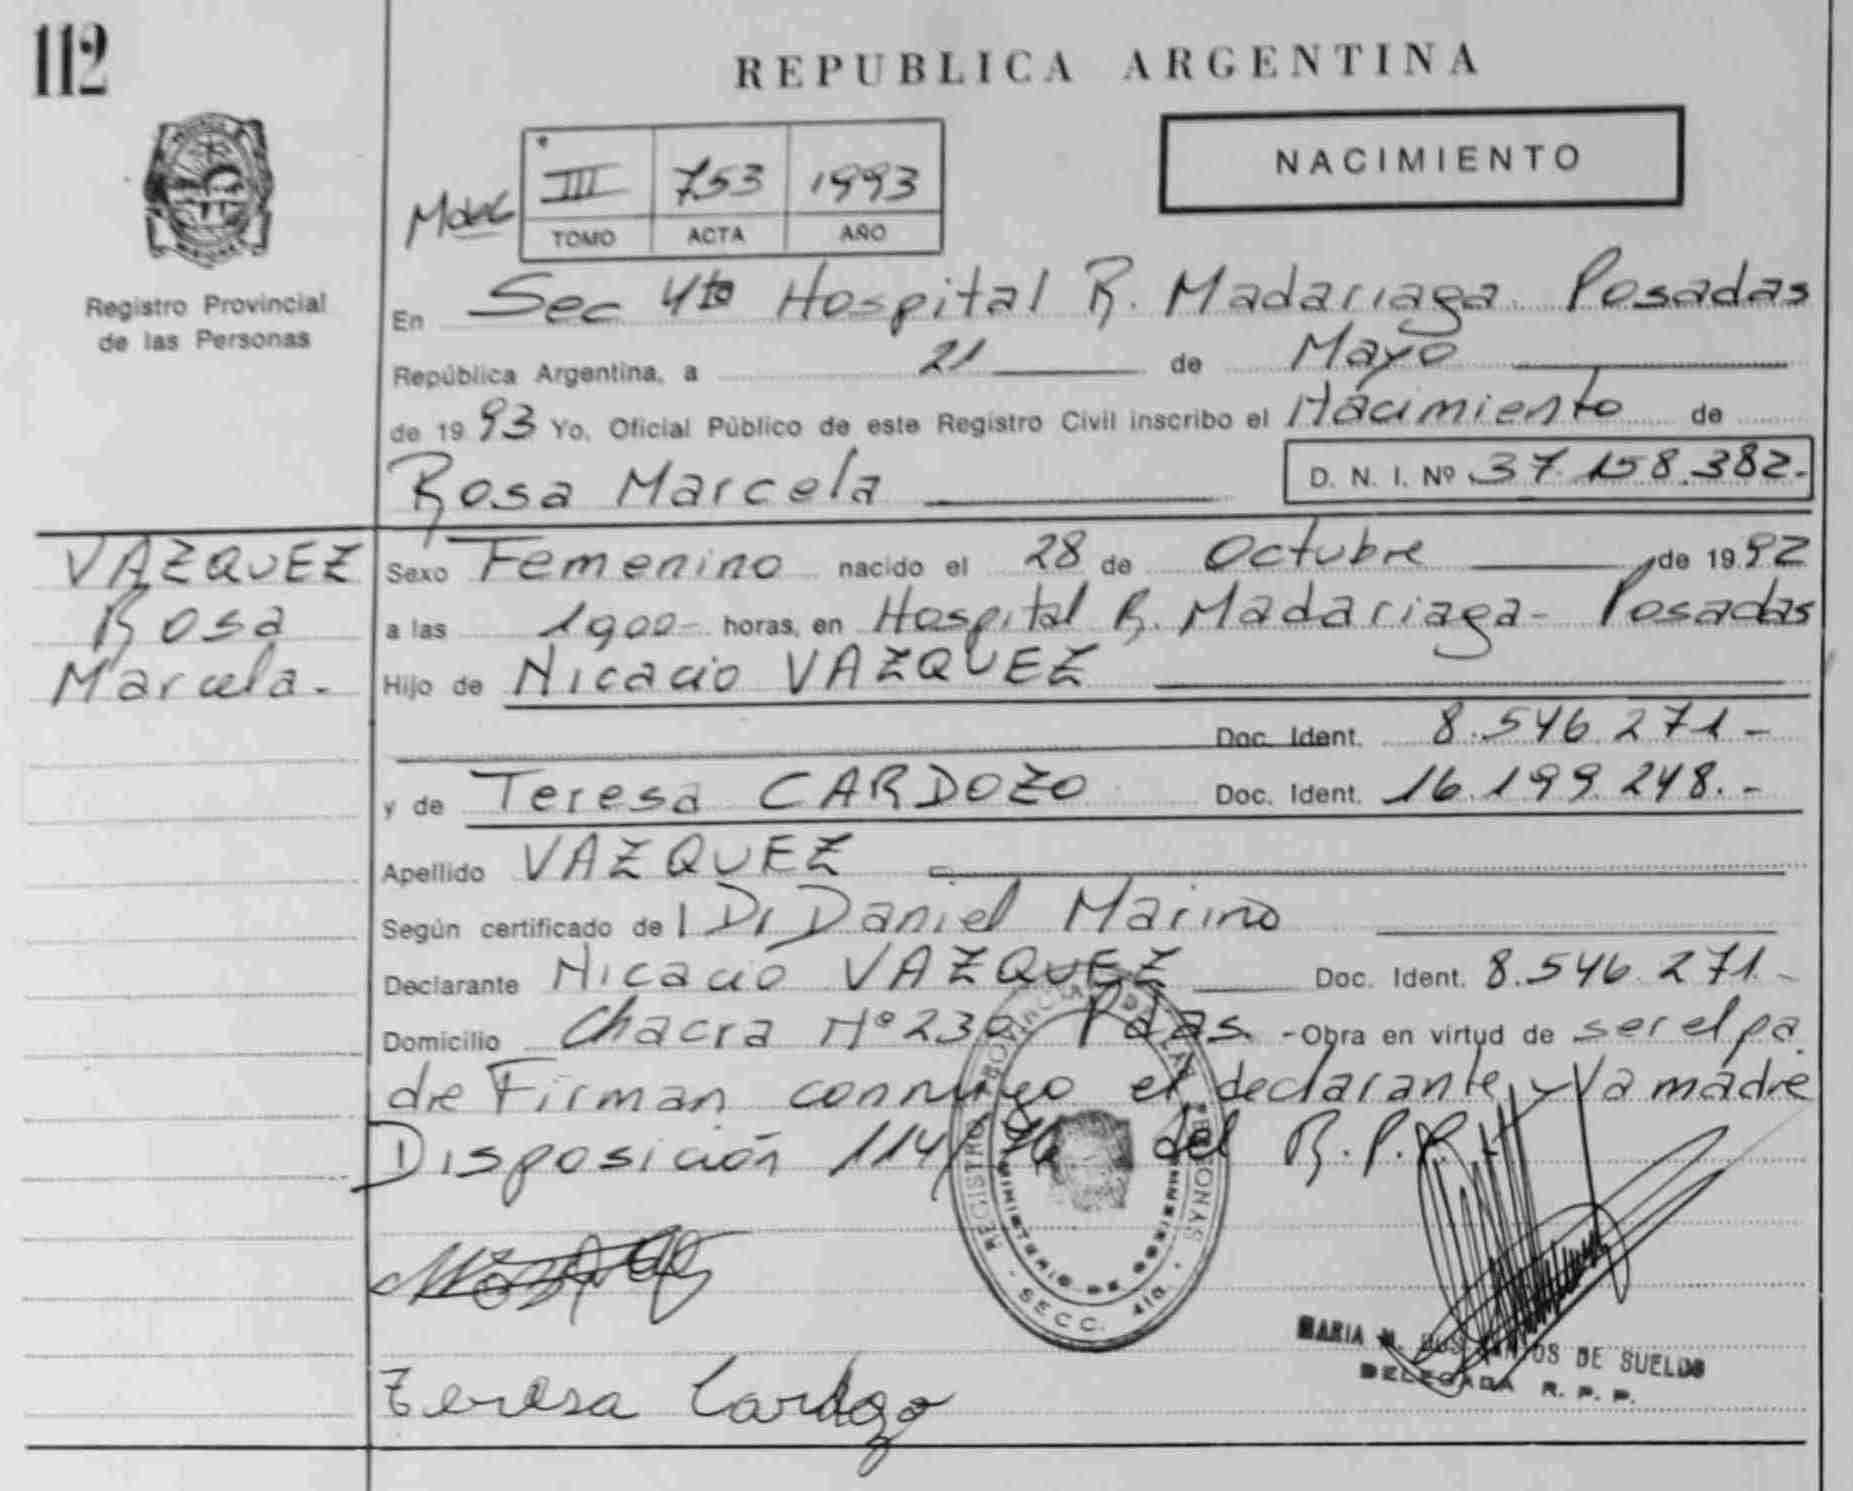 112
REPUBLICA ARGENTINA
NACIMIENTO
III 753 1993
TOMO ACTA AÑO
Registro Provincial
de las Personas
En Sec 4ta Hospital R. Madariaga. Posadas
República Argentina, a 21 de Mayo
de 1993 Yo, Oficial Público de este Registro Civil inscribo el Nacimiento de
Rosa Marcela D. N. I. Nº 37.158.382.-
VAZQUEZ
Rosa
Marcela.-
Sexo Femenino nacido el 28 de Octubre de 1992
a las 1900- horas, en Hospital R. Madariaga- Posadas
Hijo de Nicacio VAZQUEZ
Doc. Ident. 8.546.271-
y de Teresa CARDOZO Doc. Ident. 16.199.248.-
Apellido VAZQUEZ
Según certificado de Dr Daniel Marino
Declarante Nicacio VAZQUEZ Doc. Ident. 8.546.271.-
Domicilio Chacra Nº 230 Pdas. -Obra en virtud de ser el pa
dre Firman conmigo el declarante y la madre
Disposición 114/76 del R.P.P.
REGISTRO PROVINCIAL DE LAS PERSONAS
MINISTERIO DE GOBIERNO
- SECC. 4ta. -
MARIA M. DOS SANTOS DE SUELDO
DELEGADA R. P. P.
Teresa Cardozo